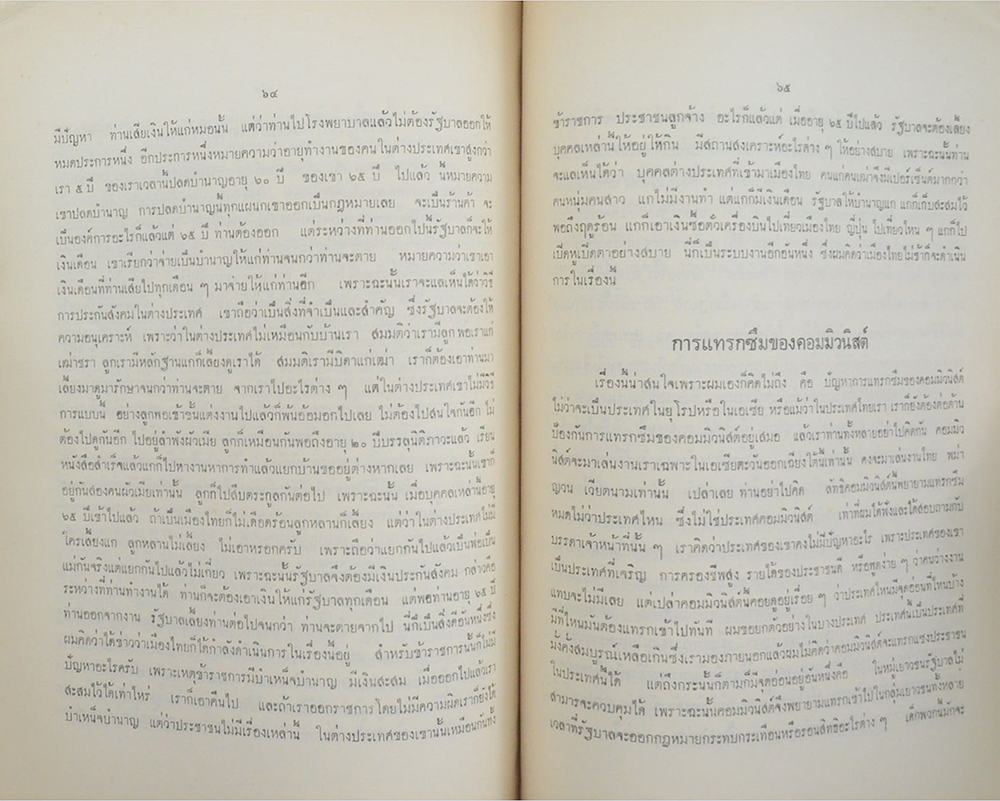 ๖๔
มีปัญหา ท่านเสียเงินให้แก่หมอนั้น แต่ว่าท่านไปโรงพยาบาลแล้วไม่ต้องรัฐบาลออกให้
หมดประการหนึ่ง อีกประการหนึ่งหมายความว่าอายุทำงานของคนในต่างประเทศเขาสูงกว่า
เรา ๕ ปี ของเราเวลานี้ปลดบำนาญอายุ ๖๐ ปี ของเขา ๖๕ ปี ไปแล้ว นี้หมายความ
เขาปลดบำนาญ การปลดบำนาญนี้ทุกแผนกเขาออกเป็นกฎหมายเลย จะเป็นร้านค้า จะ
เป็นองค์การอะไรก็แล้วแต่ ๖๕ ปี ท่านต้องออก แต่ระหว่างที่ท่านออกไปนี้รัฐบาลก็จะให้
เงินเดือน เขาเรียกว่าจ่ายเป็นบำนาญให้แก่ท่านจนกว่าท่านจะตาย หมายความว่าเขาเอา
เงินเดือนที่ท่านเสียไปทุกเดือน ๆ มาจ่ายให้แก่ท่านอีก เพราะฉะนั้นเราจะแลเห็นได้ว่าวิธี
การประกันสังคมในต่างประเทศ เขาถือว่าเป็นสิ่งที่จำเป็นและสำคัญ ซึ่งรัฐบาลจะต้องให้
ความอนุเคราะห์ เพราะว่าในต่างประเทศไม่เหมือนกับบ้านเรา สมมติว่าเรามีลูก พอเราแก่
เฒ่าชรา ลูกเรามีหลักฐานแกก็เลี้ยงดูเราได้ สมมติเรามีบิดาแก่เฒ่า เราก็ต้องเอาท่านมา
เลี้ยงมาดูมารักษาจนกว่าท่านจะตาย จากเราไปอะไรต่าง ๆ แต่ในต่างประเทศเขาไม่มีวิธี
การแบบนี้ อย่างลูกพอเข้าขั้นแต่งงานไปแล้วก็พ้นอ้อมอกไปเลย ไม่ต้องไปสนใจกันอีก ไม่
ต้องไปดูกันอีก ไปอยู่ลำพังผัวเมีย ลูกก็เหมือนกันพอถึงอายุ ๒๐ ปีบรรลุนิติภาวะแล้ว เรียน
หนังสือสำเร็จแล้วแกก็ไปหางานหาการทำแล้วแยกบ้านขออยู่ต่างหากเลย เพราะฉะนั้นเราก็
อยู่กันสองคนผัวเมียเท่านั้น ลูกก็ไปสืบตระกูลกันต่อไป เพราะฉะนั้น เมื่อบุคคลเหล่านี้อายุ
๖๕ ปีเข้าไปแล้ว ถ้าเป็นเมืองไทยก็ไม่เดือดร้อนลูกหลานก็เลี้ยง แต่ว่าในต่างประเทศไม่มี
ใครเลี้ยงแก ลูกหลานไม่เลี้ยง ไม่เอาหรอกครับ เพราะถือว่าแยกกันไปแล้วเป็นพ่อเป็น
แม่กันจริงแต่แยกกันไปแล้วไม่เกี่ยว เพราะฉะนั้นรัฐบาลจึงต้องมีเงินประกันสังคม กล่าวคือ
ระหว่างที่ท่านทำงานได้ ท่านก็จะต้องเอาเงินให้แก่รัฐบาลทุกเดือน แต่พอท่านอายุ ๖๕ ปี
ท่านออกจากงาน รัฐบาลเลี้ยงท่านต่อไปจนกว่า ท่านจะตายจากไป นี่ก็เป็นสิ่งดีอันหนึ่งซึ่ง
ผมคิดว่าได้ข่าวว่าเมืองไทยก็ได้กำลังดำเนินการในเรื่องนี้อยู่ สำหรับข้าราชการนั้นก็ไม่มี
ปัญหาอะไรครับ เพราะเหตุข้าราชการมีบำเหน็จบำนาญ มีเงินสะสม เมื่อออกไปแล้วเรา
สะสมไว้ได้เท่าไหร่ เราก็เอาคืนไป และถ้าเราออกราชการโดยไม่มีความผิดเราก็ยังได้
บำเหน็จบำนาญ แต่ว่าประชาชนไม่มีเรื่องเหล่านี้ ในต่างประเทศของเขานั้นเหมือนกันทั้ง
๖๕
ข้าราชการ ประชาชนลูกจ้าง อะไรก็แล้วแต่ เมื่ออายุ ๖๕ ปีไปแล้ว รัฐบาลจะต้องเลี้ยง
บุคคลเหล่านี้ให้อยู่ให้กิน มีสถานสงเคราะห์อะไรต่าง ๆ ให้อย่างสบาย เพราะฉะนั้นท่าน
จะแลเห็นได้ว่า บุคคลต่างประเทศที่เข้ามาเมืองไทย คนแกคนเฒ่าจึงมีเปอร์เซ็นต์มากกว่า
คนหนุ่มคนสาว แกไม่มีงานทำ แต่แกก็มีเงินเดือน รัฐบาลให้บำนาญแก แกก็เก็บสะสมไว้
พอถึงฤดูร้อน แกก็เอาเงินซื้อตั๋วเครื่องบินไปเที่ยวเมืองไทย ญี่ปุ่น ไปเที่ยวไหน ๆ แกก็ไป
เปิดหูเปิดตาอย่างสบาย นี่ก็เป็นระบบงานอีกอันหนึ่ง ซึ่งผมคิดว่าเมืองไทยไม่ช้าก็จะดำเนิน
การในเรื่องนี้
การแทรกซึมของคอมมิวนิสต์
เรื่องนี้น่าสนใจเพราะผมเองก็คิดไม่ถึง คือ ปัญหาการแทรกซึมของคอมมิวนิสต์
ไม่ว่าจะเป็นประเทศในยุโรปหรือในเอเซีย หรือแม้ว่าในประเทศไทยเรา เราก็ยังต้องต่อต้าน
ป้องกันการแทรกซึมของคอมมิวนิสต์อยู่เสมอ แล้วเราท่านทั้งหลายอย่าไปคิดกัน คอมมิว
นิสต์จะมาเล่นงานเราเฉพาะในเอเซียตะวันออกเฉียงใต้นี้เท่านั้น คงจะมาเล่นงานไทย พม่า
ญวน เวียดนามเท่านั้น เปล่าเลย ท่านอย่าไปคิด ลัทธิคอมมิวนิสต์นี้พยายามแทรกซึม
หมดไม่ว่าประเทศไหน ซึ่งไม่ใช่ประเทศคอมมิวนิสต์ เท่าที่ผมได้ฟังและได้สอบถามกับ
บรรดาเจ้าหน้าที่นั้น ๆ เราคิดว่าประเทศของเขาคงไม่มีปัญหาอะไร เพราะประเทศของเขา
เป็นประเทศที่เจริญ การครองชีพสูง รายได้ของประชาชนดี หรือพูดง่าย ๆ ว่าคนว่างงาน
แทบจะไม่มีเลย แต่เปล่าคอมมิวนิสต์นี้คอยดูอยู่เรื่อย ๆ ว่าประเทศไหนมีจุดอ่อนที่ไหนบ้าง
มีที่ไหนมันต้องแทรกเข้าไปทันที ผมขอยกตัวอย่างในบางประเทศ ประเทศนี้เป็นประเทศที่
มั่งคั่งสมบูรณ์เหลือเกินซึ่งเรามองภายนอกแล้วผมไม่คิดว่าคอมมิวนิสต์จะแทรกแซงประชาชน
ในประเทศนี้ได้ แต่ถึงกระนั้นก็ตามก็มีจุดอ่อนอยู่อันหนึ่งคือ ในหมู่เยาวชนรัฐบาลไม่
สามารถจะควบคุมได้ เพราะฉะนั้นคอมมิวนิสต์จึงพยายามแทรกเข้าไปในกลุ่มเยาวชนทั้งหลาย
เวลาที่รัฐบาลจะออกกฎหมายกระทบกระเทือนหรือรอนสิทธิอะไรต่าง ๆ เด็กพวกนี้มักจะ